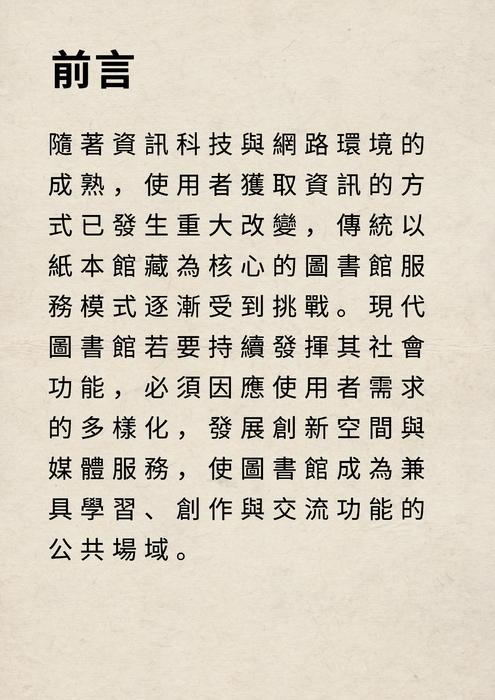 前言
隨著資訊科技與網路環境的
成熟，使用者獲取資訊的方
式已發生重大改變，傳統以
紙本館藏為核心的圖書館服
務模式逐漸受到挑戰。現代
圖書館若要持續發揮其社會
功能，必須因應使用者需求
的多樣化，發展創新空間與
媒體服務，使圖書館成為兼
具學習、創作與交流功能的
公共場域。